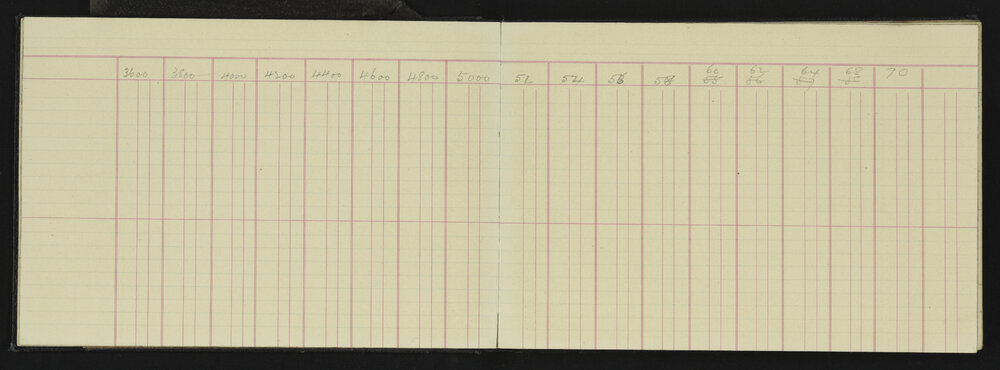 3600 3800 4000 4200 4400 4600 4800 5000 52 54 56 58 60 62 64 68 70